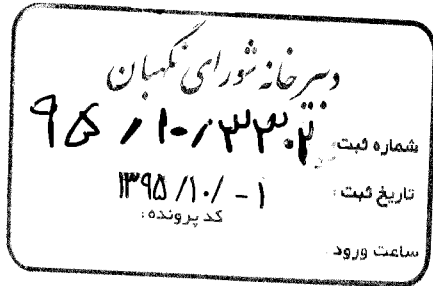 دبیرخانه شورای نگهبان
شماره ثبت: ۹۵/۱۰/۳۳۰۲
تاریخ ثبت: ۱-/۱۰/۱۳۹۵
کد پرونده:
ساعت ورود